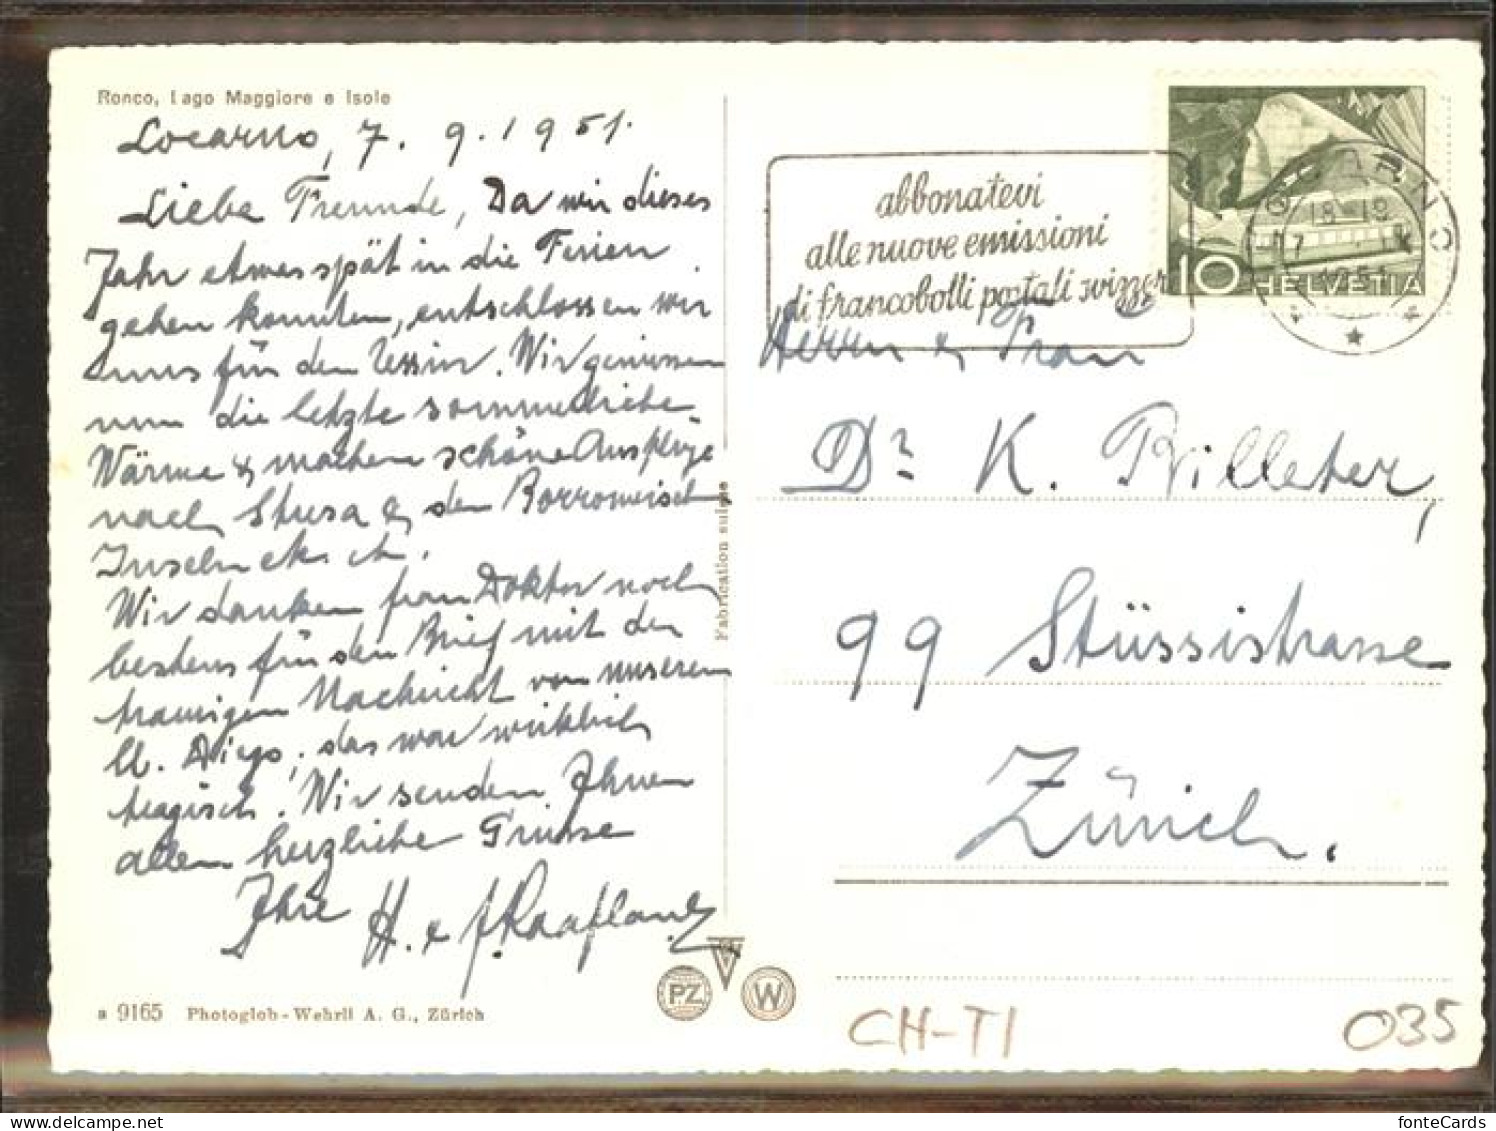 Ronco, Lago Maggiore e Isole
Locarno, 7. 9. 1951.
Liebe Freunde, Da wir dieses
Jahr etwas spät in die Ferien
gehen konnten, entschlossen wir
uns für den Tessin. Wir geniessen
nun die letzte sommerliche
Wärme & machen schöne Ausflüge
nach Stresa & den Borromeisch
Inseln etc. etc.
Wir danken Frau Doktor noch
bestens für den Brief mit der
traurigen Nachricht von unserem
lb. Diego, das war wirklich
tragisch. Wir senden Ihnen
allen herzliche Grüsse
Ihre H. & J. Raaflaub
a 9165 Photoglob-Wehrli A. G., Zürich
Fabrication suisse
PZ W
abbonatevi
alle nuove emissioni
di francobolli postali svizzeri
10 HELVETIA
LOCARNO
18-19
7. IX
1951
Herrn & Frau
Dr. K. Billeter,
99 Stüssistrasse
Zürich.
CH-TI
035
fonteCards